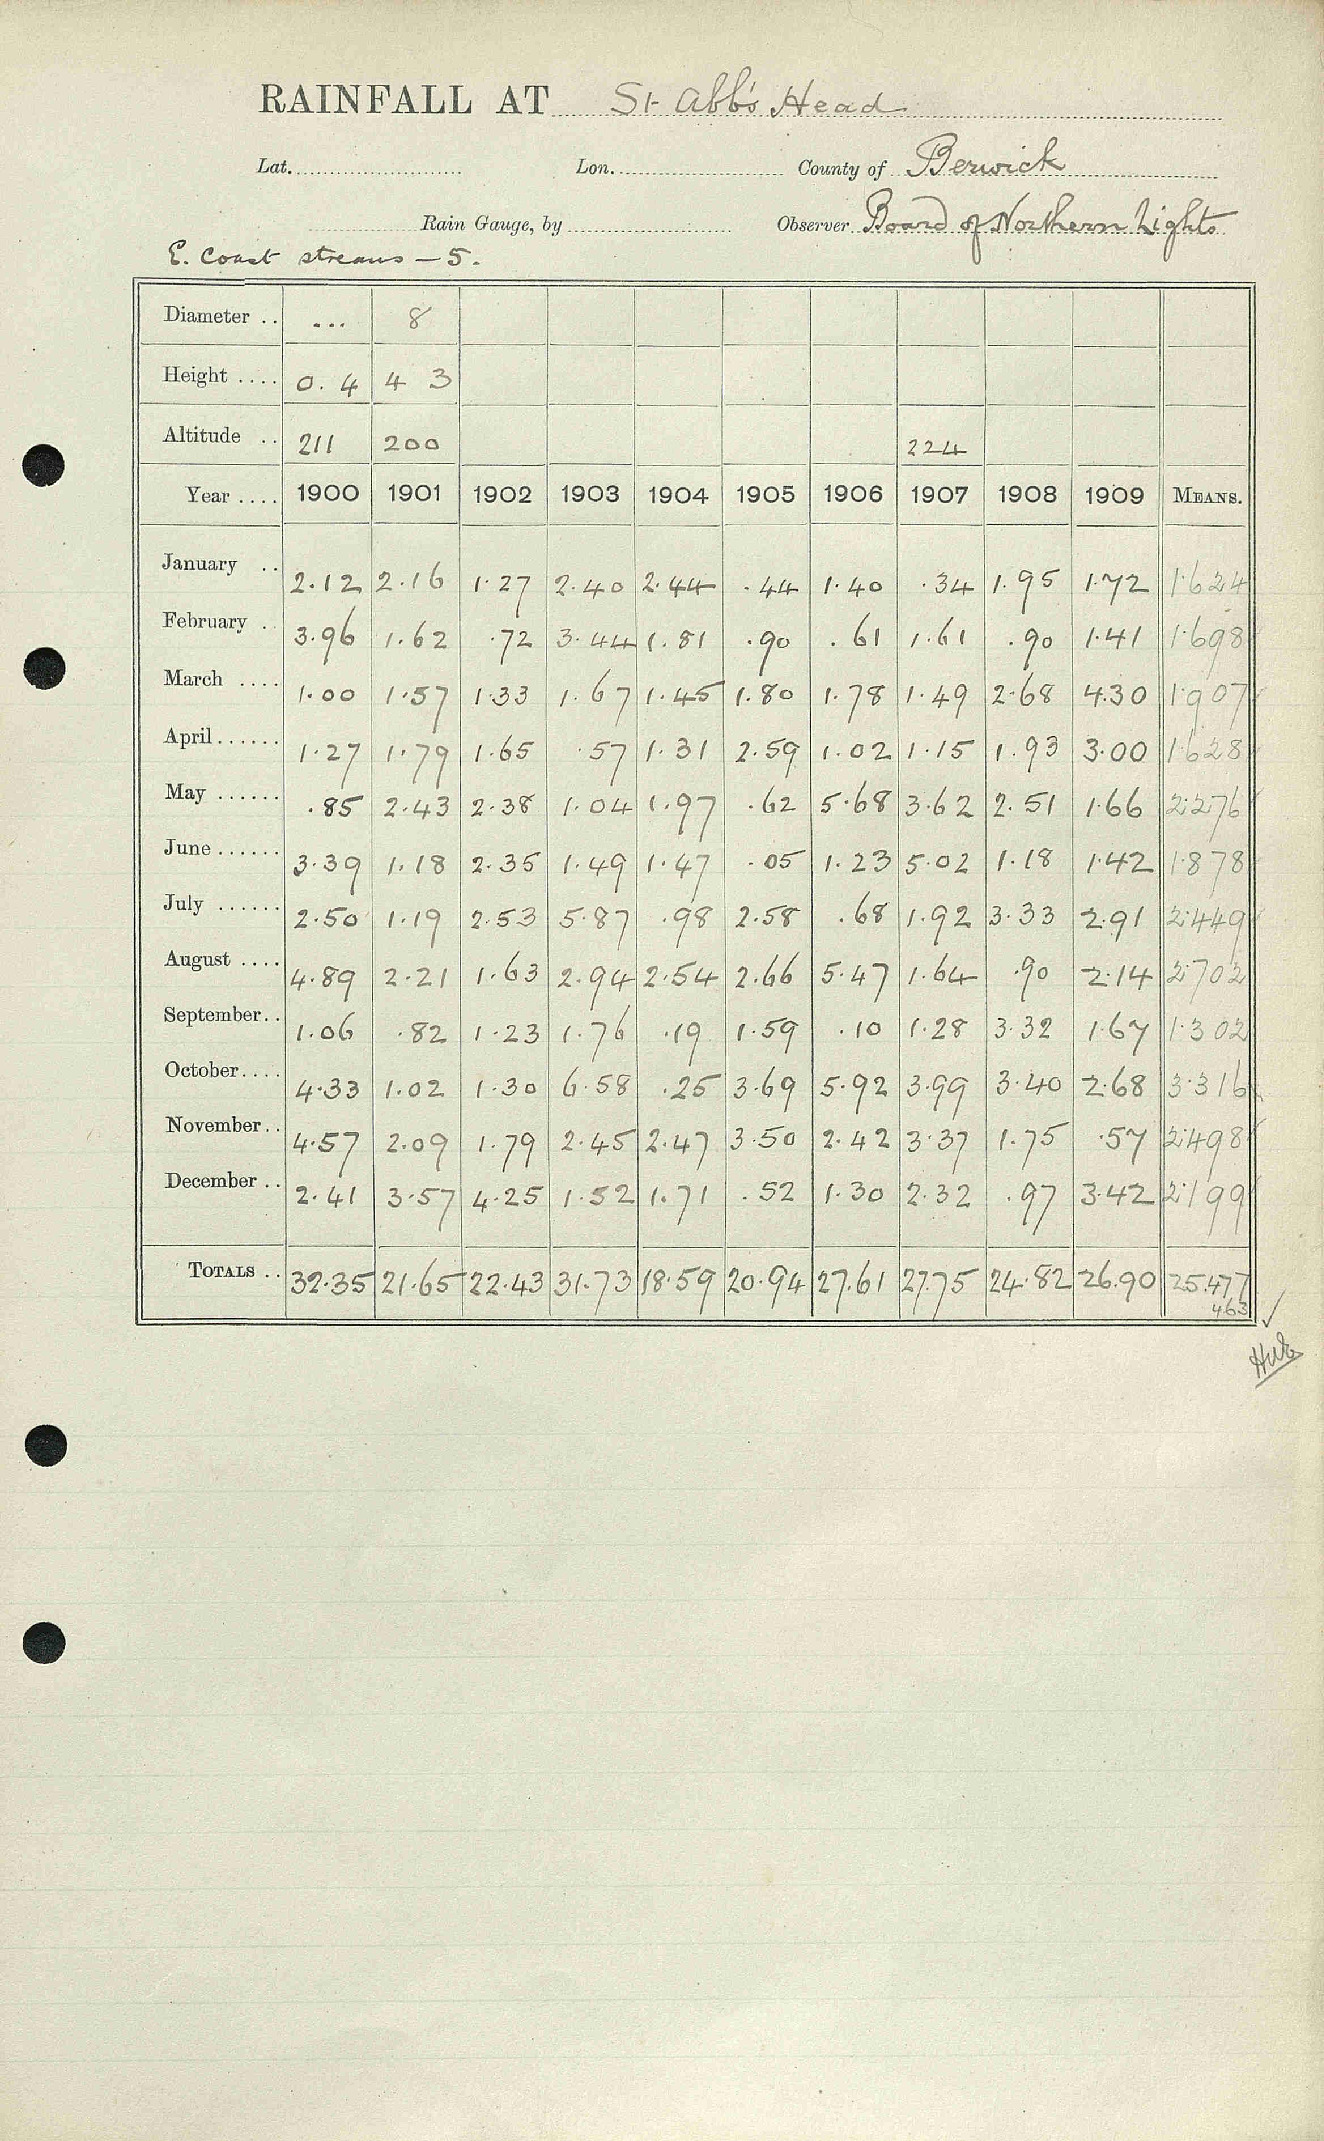 RAINFALL AT St Abb's Head
Lat. Lon. County of Berwick
Rain Gauge, by Observer Board of Northern Lights
E. Coast streams - 5.
Diameter .. ... 8
Height .... 0. 4 4 3
Altitude .. 211 200 224
Year .... 1900 1901 1902 1903 1904 1905 1906 1907 1908 1909 MEANS.
January .. 2.12 2.16 1.27 2.40 2.44 .44 1.40 .34 1.95 1.72 1.624
February .. 3.96 1.62 .72 3.44 1.81 .90 .61 1.61 .90 1.41 1.698
March .... 1.00 1.57 1.33 1.67 1.45 1.80 1.78 1.49 2.68 4.30 1.907
April...... 1.27 1.79 1.65 .57 1.31 2.59 1.02 1.15 1.93 3.00 1.628
May ...... .85 2.43 2.38 1.04 1.97 .62 5.68 3.62 2.51 1.66 2.276
June...... 3.39 1.18 2.35 1.49 1.47 .05 1.23 5.02 1.18 1.42 1.878
July ...... 2.50 1.19 2.53 5.87 .98 2.58 .68 1.92 3.33 2.91 2.449
August .... 4.89 2.21 1.63 2.94 2.54 2.66 5.47 1.64 .90 2.14 2.702
September.. 1.06 .82 1.23 1.76 .19 1.59 .10 1.28 3.32 1.67 1.302
October.... 4.33 1.02 1.30 6.58 .25 3.69 5.92 3.99 3.40 2.68 3.316
November.. 4.57 2.09 1.79 2.45 2.47 3.50 2.42 3.37 1.75 .57 2.498
December .. 2.41 3.57 4.25 1.52 1.71 .52 1.30 2.32 .97 3.42 2.199
TOTALS .. 32.35 21.65 22.43 31.73 18.59 20.94 27.61 27.75 24.82 26.90 25.477
463